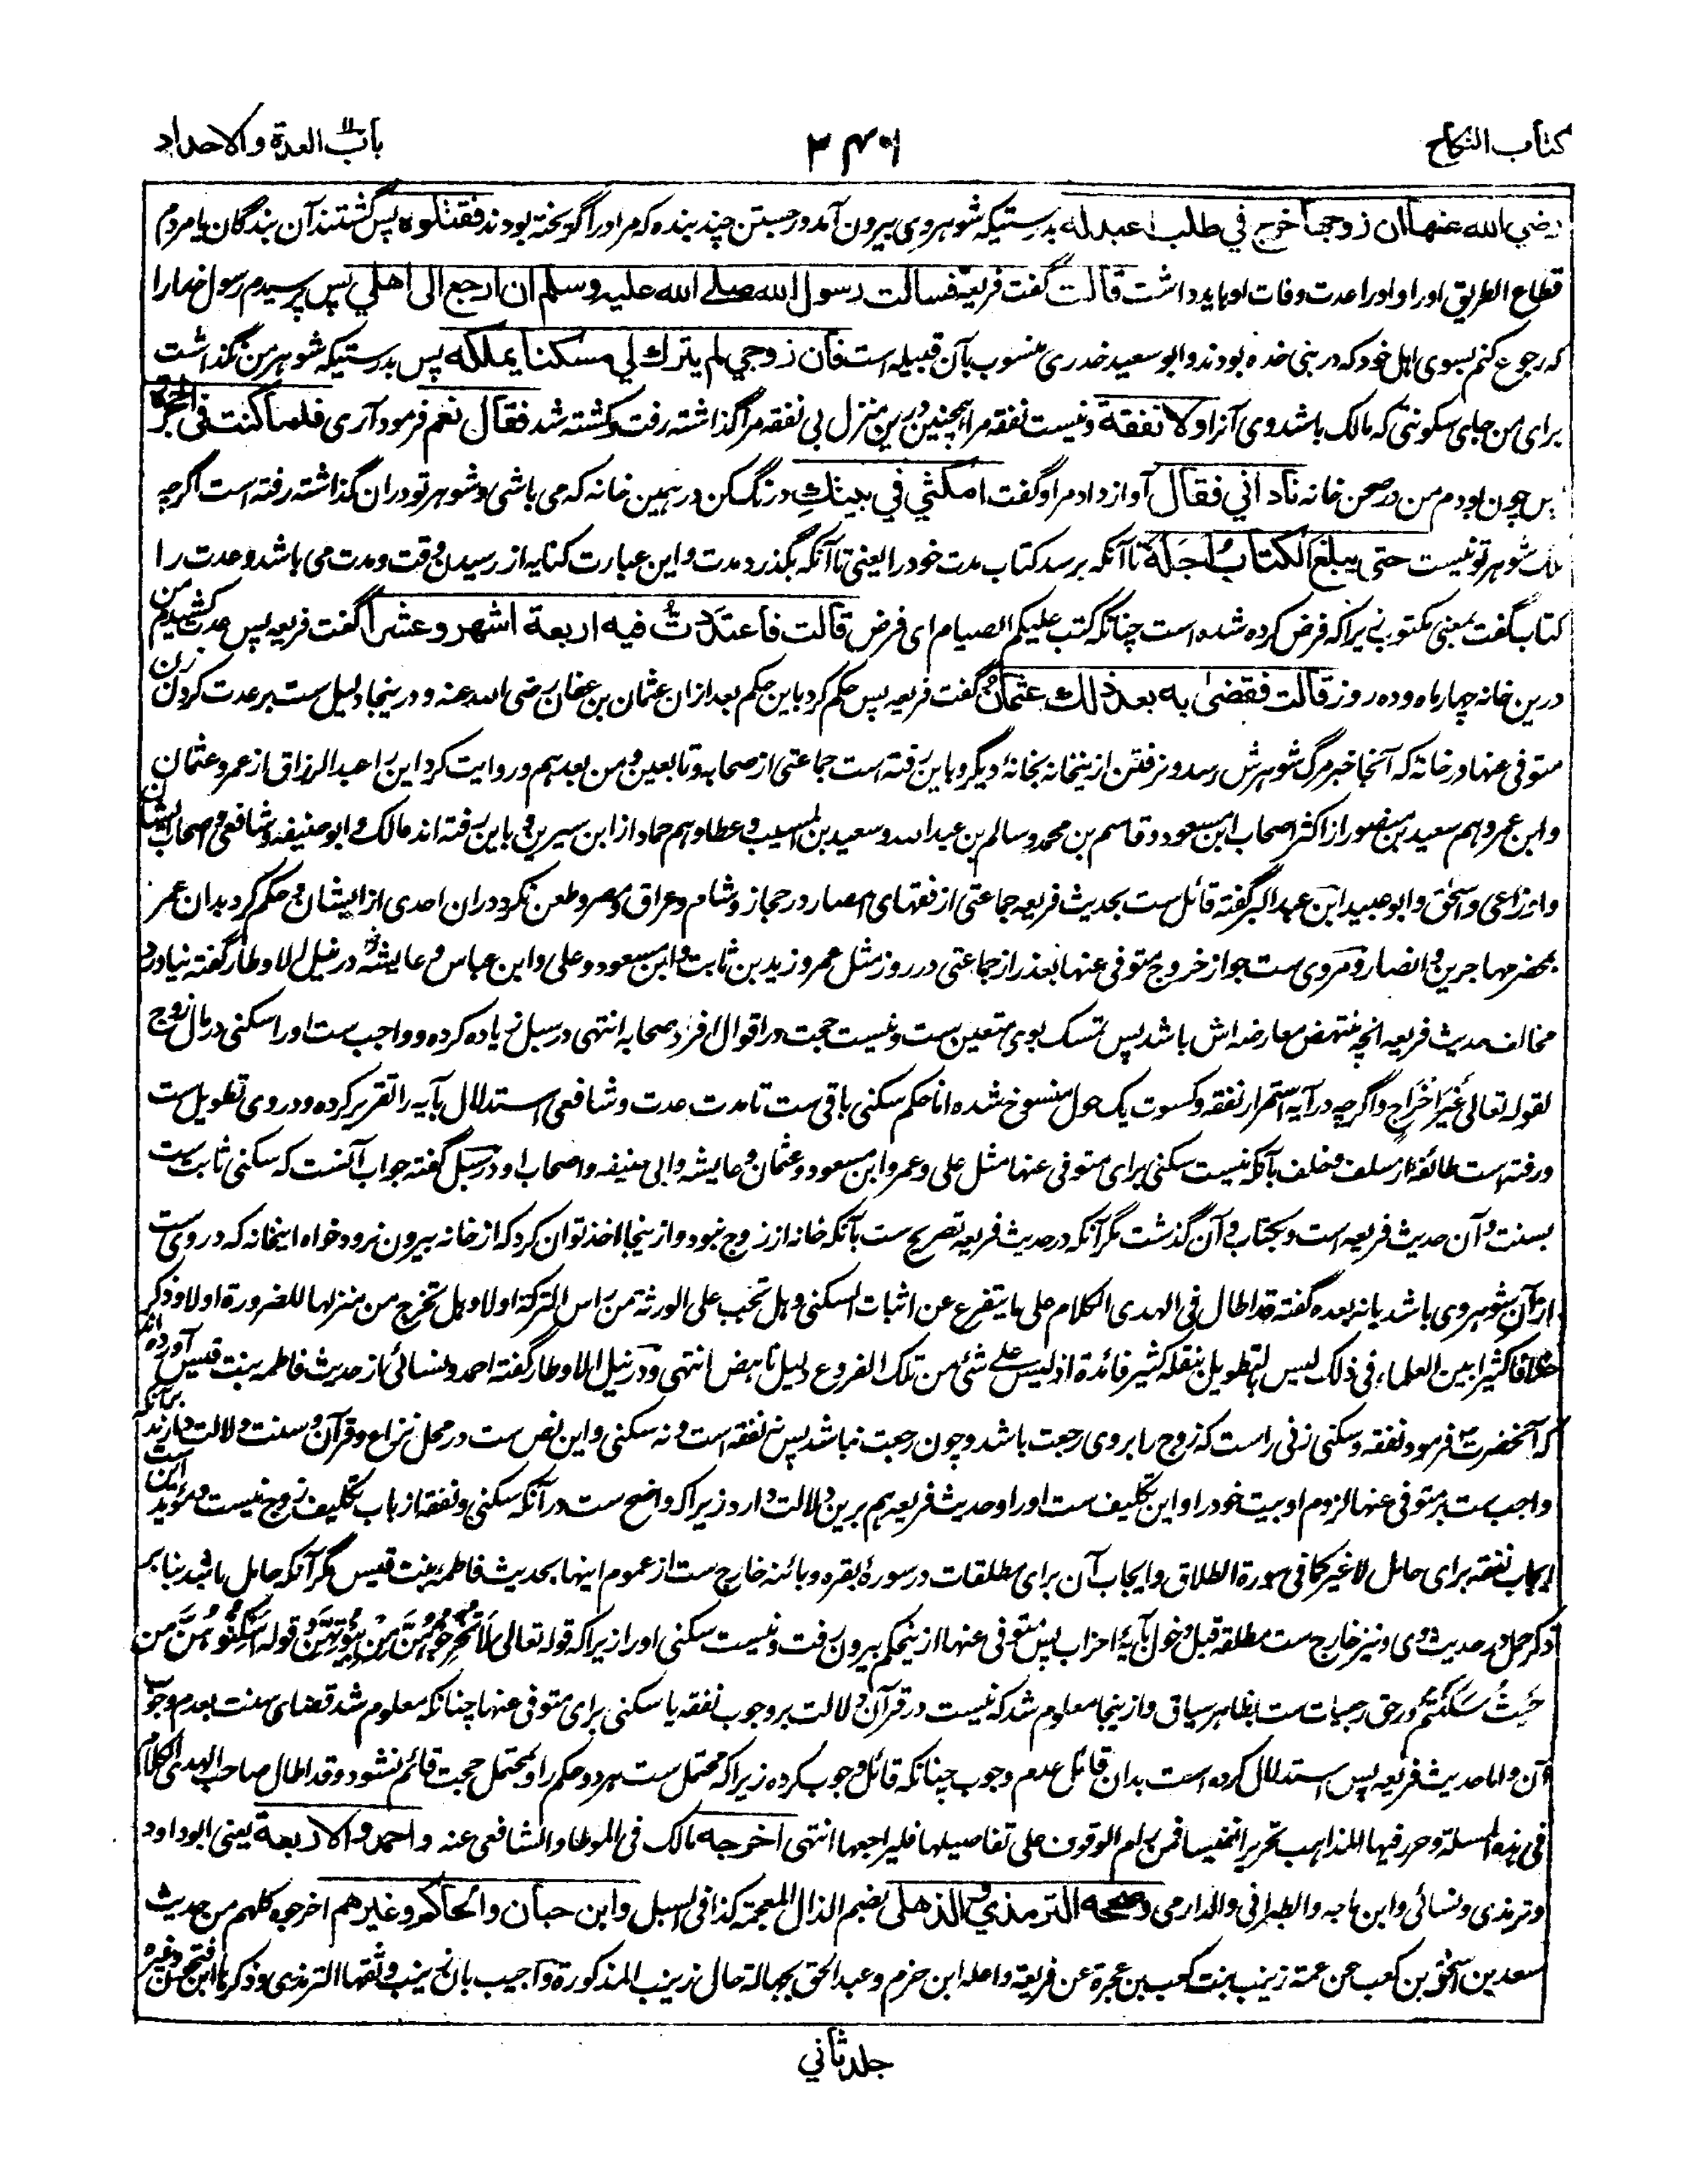 كتاب النكاح
۲۴۰۶
باب العدة والاحداد
رضي الله عنها ان زوجها خرج في طلب اعبد له بدرستیکه شوهر وی بیرون آمد در جستن چند بنده که مر او را گریخته بودند فقتلوه پس کشتند آن بندگان یا مردم
قطاع الطریق او را و او را عدت وفات او باید داشت قالت گفت فریعه فسالت رسول الله صلے الله علیه وسلم ان ارجع الی اهلي پس پرسیدم رسول خدا را
که رجوع کنم بسوی اهل خود که در بنی خدره بودند و ابو سعید خدری منسوب بآن قبیله است فان زوجي لم يترك لي مسكنا يملكه پس بدرستیکه شوهر من نگذاشت
برای من جای سکونتی که مالک باشد وی آنرا ولا نفقة و نیست نفقه مرا همچنین درین منزل بی نفقه مرا گذاشته رفت و کشته شد فقال نعم فرمود آری فلما كنت فی الحجرة
پس چون بودم من در صحن خانه نادانی فقال آواز داد مرا و گفت امكثي في بيتكِ درنگ کن در همین خانه که می باشی و شوهر تو دران گذاشته رفته است اگرچه
ملک شوهر تو نیست حتی يبلغ الكتابُ اجَلَه تا آنکه برسد کتاب مدت خود را یعنی تا آنکه بگذرد مدت و این عبارت کنایه از رسیدن وقت و مدت می باشد و عدت را
کتاب گفت بمعنی مکتوب زیراکه فرض کرده شده است چنانکه کتب علیکم الصیام ای فرض قالت فاعتددتُ فيه اربعة اشهر وعشرا گفت فریعه پس عدت کشیدم من
درین خانه چهار ماه و ده روز قالت فقضیٰ به بعد ذلك عثمانُ گفت فریعه پس حکم کرد باین حکم بعد ازان عثمان بن عفان رضی الله عنه و درینجا دلیل ست بر عدت کردن زن
متوفی عنها در خانه که آنجا خبر مرگ شوهرش رسد و نرفتن ازینخانه بخانهٔ دیگر و باین رفته است جماعتی از صحابه و تابعین و من بعدهم و روایت کرد این را عبد الرزاق از عمر و عثمان
و ابن عمر و هم سعید بن منصور از اکثر اصحاب ابن مسعود و قاسم بن محمد و سالم بن عبد الله و سعید بن المسیب و عطا و هم حماد از ابن سیرین و باین رفته اند مالک و ابو حنیفه و شافعی و اصحاب ایشان
و اوزاعی و اسحٰق و ابو عبید ابن عبد البر گفته قائل ست بحدیث فریعه جماعتی از فقهای امصار در حجاز و شام و عراق و مصر و طعن نکرد دران احدی از ایشان و حکم کرد بدان عمر
بمحضر مهاجرین و انصار و مروی ست جواز خروج متوفی عنها بعذر از جماعتی در روز مثل عمر و زید بن ثابت و ابن مسعود و علی و ابن عباس و عایشه در نیل الاوطار گفته نیاورد
مخالف حدیث فریعه انچه منتهض معارضه اش باشد پس تمسک بوی متعین ست و نیست حجت در اقوال افراد صحابه انتهی در سبل زیاده کرده و واجب ست او را سکنی در مال زوج
لقوله تعالی غَیْرَ اِخْرَاجٍ و اگرچه در آیه استمرار نفقه و کسوت یک حول منسوخ شده اما حکم سکنی باقی ست تا مدت عدت و شافعی استدلال بآیه را تقریر کرده و در وی تطویل ست
و رفته است طائفه از سلف و خلف بآنکه نیست سکنی برای متوفی عنها مثل علی و عمر و ابن مسعود و عثمان و عایشه و ابی حنیفه و اصحاب او در سبل گفته جواب آنست که سکنی ثابت ست
بسنت و آن حدیث فریعه است و بکتاب و آن گذشت مگر آنکه در حدیث فریعه تصریح ست بآنکه خانه از زوج نبود و ازینجا اخذ توان کرد که از خانه بیرون نرود خواه اینخانه که در وی ست
از آن شوهر وی باشد یا نه بعده گفته قد اطال فی الهدی الکلام علی ما یتفرع عن اثبات السکنی و هل تجب علی الورثة من راس الترکة او لا و هل تخرج من منزلها للضرورة او لا و ذکر
خلافا کثیرا بین العلماء فی ذلک لیس للتطویل بنقله کثیر فائدة اذ لیس علی شئ من تلک الفروع دلیل ناهض انتهی و در نیل الاوطار گفته احمد و نسائی از حدیث فاطمه بنت قیس آورده اند
که آنحضرت فرمود نفقه و سکنی زنی راست که زوج را بر وی رجعت باشد و چون رجعت نباشد پس نه نفقه است و نه سکنی و این نص ست در محل نزاع و قرآن و سنت دلالت دارند برآنکه
واجب ست بر متوفی عنها لزوم او بیت خود را و این تکلیف ست او را و حدیث فریعه هم برین دلالت دارد زیراکه واضح ست در آنکه سکنی و نفقه از باب تکلیف زوج نیست و مؤید این است
ایجاب نفقه برای حامل لا غیر کما فی سورة الطلاق و ایجاب آن برای مطلقات در سورهٔ بقره و بائنه خارج ست از عموم اینها بحدیث فاطمه بنت قیس مگر آنکه حامل باشد بنا بر
ذکر حمل در حدیث وی و نیز خارج ست مطلقه قبل دخول بآیهٔ احزاب پس متوفی عنها ازینحکم بیرون رفت و نیست سکنی او را زیراکه قوله تعالی لَا تُخْرِجُوْهُنَّ مِنْ بُيُوْتِهِنَّ و قوله اَسْکِنُوْهُنَّ مِن
حَيْثُ سَکَنْتُمْ در حق رجعیات ست بظاهر سیاق و ازینجا معلوم شد که نیست در قرآن دلالت بر وجوب نفقه یا سکنی برای متوفی عنها چنانکه معلوم شد قضای سنت بعدم وجوب
آن و اما حدیث فریعه پس استدلال کرده است بدان قائل عدم وجوب چنانکه قائل وجوب کرده زیراکه محتمل ست هر دو حکم را و بمحتمل حجت قائم نشود و قد اطال صاحب الهدی الکلام
فی هذه المسئلة و حرر فیها المذاهب تحریرا نفیسا فمن رام الوقوف علی تفاصیلها فلیراجعها انتهی اخرجه مالک فی الموطا و الشافعی عنه و احمد والاربعة یعنی ابو داود
و ترمذی و نسائی و ابن ماجه و الطبرانی و الدارمی وصححه الترمذي والذهلی بضم الذال المعجمة کذا فی السبل وابن حبان والحاكم وغيرهم اخرجوه کلهم من حدیث
سعد بن اسحٰق بن کعب عن عمته زینب بنت کعب بن عجرة عن فریعة و اعله ابن حزم و عبد الحق بجهالة حال زینب المذکورة و اجیب بان زینب وثقها الترمذی و ذکرها ابن فتحون وغیره
جلد ثاني